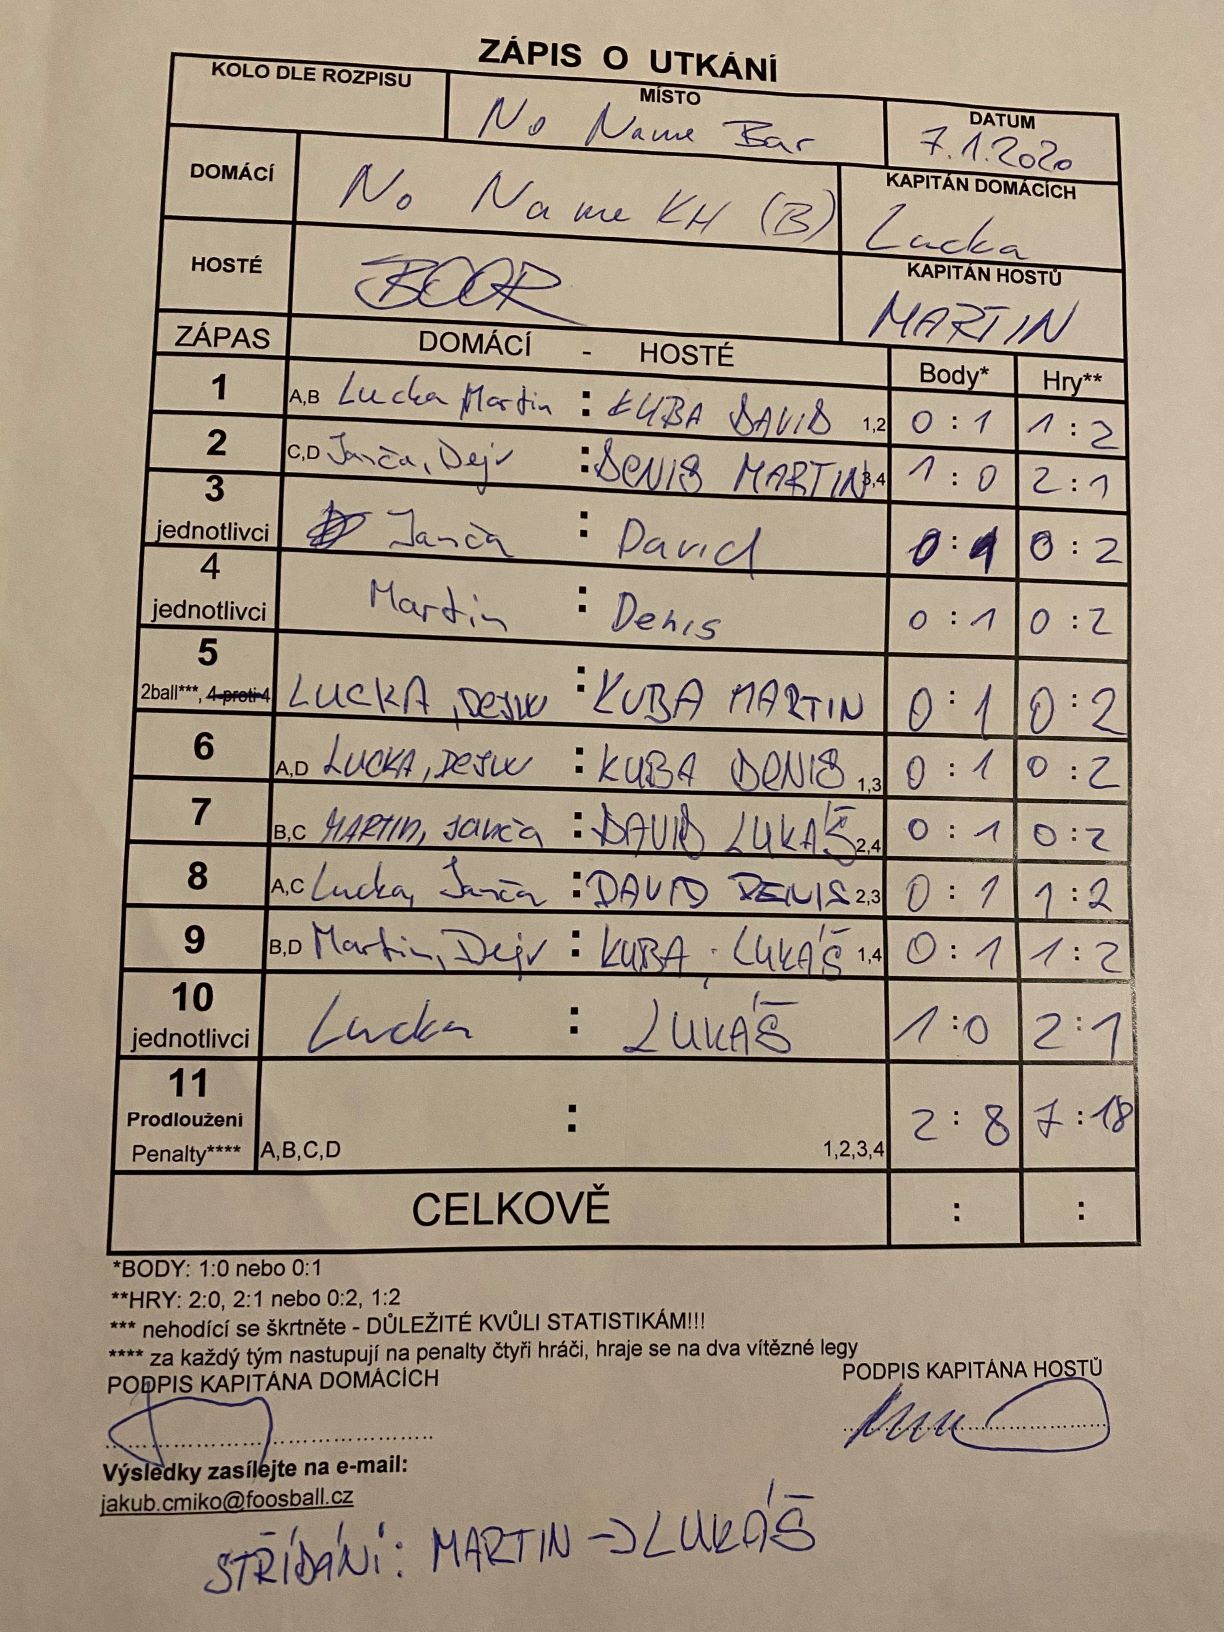 ZÁPIS O UTKÁNÍ
KOLO DLE ROZPISU
MÍSTO
No Name Bar
DATUM
7.1.2020
DOMÁCÍ
No Name KH (B)
KAPITÁN DOMÁCÍCH
Lucka
HOSTÉ
BOOR
KAPITÁN HOSTŮ
MARTIN
ZÁPAS DOMÁCÍ - HOSTÉ Body* Hry**
1 A,B Lucka Martin : KUBA DAVID 1,2 0 : 1 1 : 2
2 C,D Janča, Dejv : DENIS MARTIN 3,4 1 : 0 2 : 1
3 jednotlivci Janča : David 0 : 1 0 : 2
4 jednotlivci Martin : Denis 0 : 1 0 : 2
5 2ball***, 4 proti 4 LUCKA, DEJW : KUBA MARTIN 0 : 1 0 : 2
6 A,D LUCKA, DEJW : KUBA DENIS 1,3 0 : 1 0 : 2
7 B,C MARTIN, JANČA : DAVID LUKÁŠ 2,4 0 : 1 0 : 2
8 A,C Lucka, Janča : DAVID DENIS 2,3 0 : 1 1 : 2
9 B,D Martin, Dejv : KUBA, LUKÁŠ 1,4 0 : 1 1 : 2
10 jednotlivci Lucka : LUKÁŠ 1 : 0 2 : 1
11 Prodloužení
Penalty**** A,B,C,D : 1,2,3,4 2 : 8 7 : 18
CELKOVĚ : :
*BODY: 1:0 nebo 0:1
**HRY: 2:0, 2:1 nebo 0:2, 1:2
*** nehodící se škrtněte - DŮLEŽITÉ KVŮLI STATISTIKÁM!!!
**** za každý tým nastupují na penalty čtyři hráči, hraje se na dva vítězné legy
PODPIS KAPITÁNA DOMÁCÍCH
PODPIS KAPITÁNA HOSTŮ
Výsledky zasílejte na e-mail:
jakub.cmiko@foosball.cz
STŘÍDÁNÍ: MARTIN → LUKÁŠ